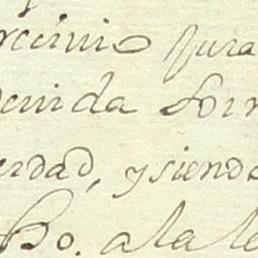 rcinio Jura
enida for
erdad, y siend
Ho. a la le